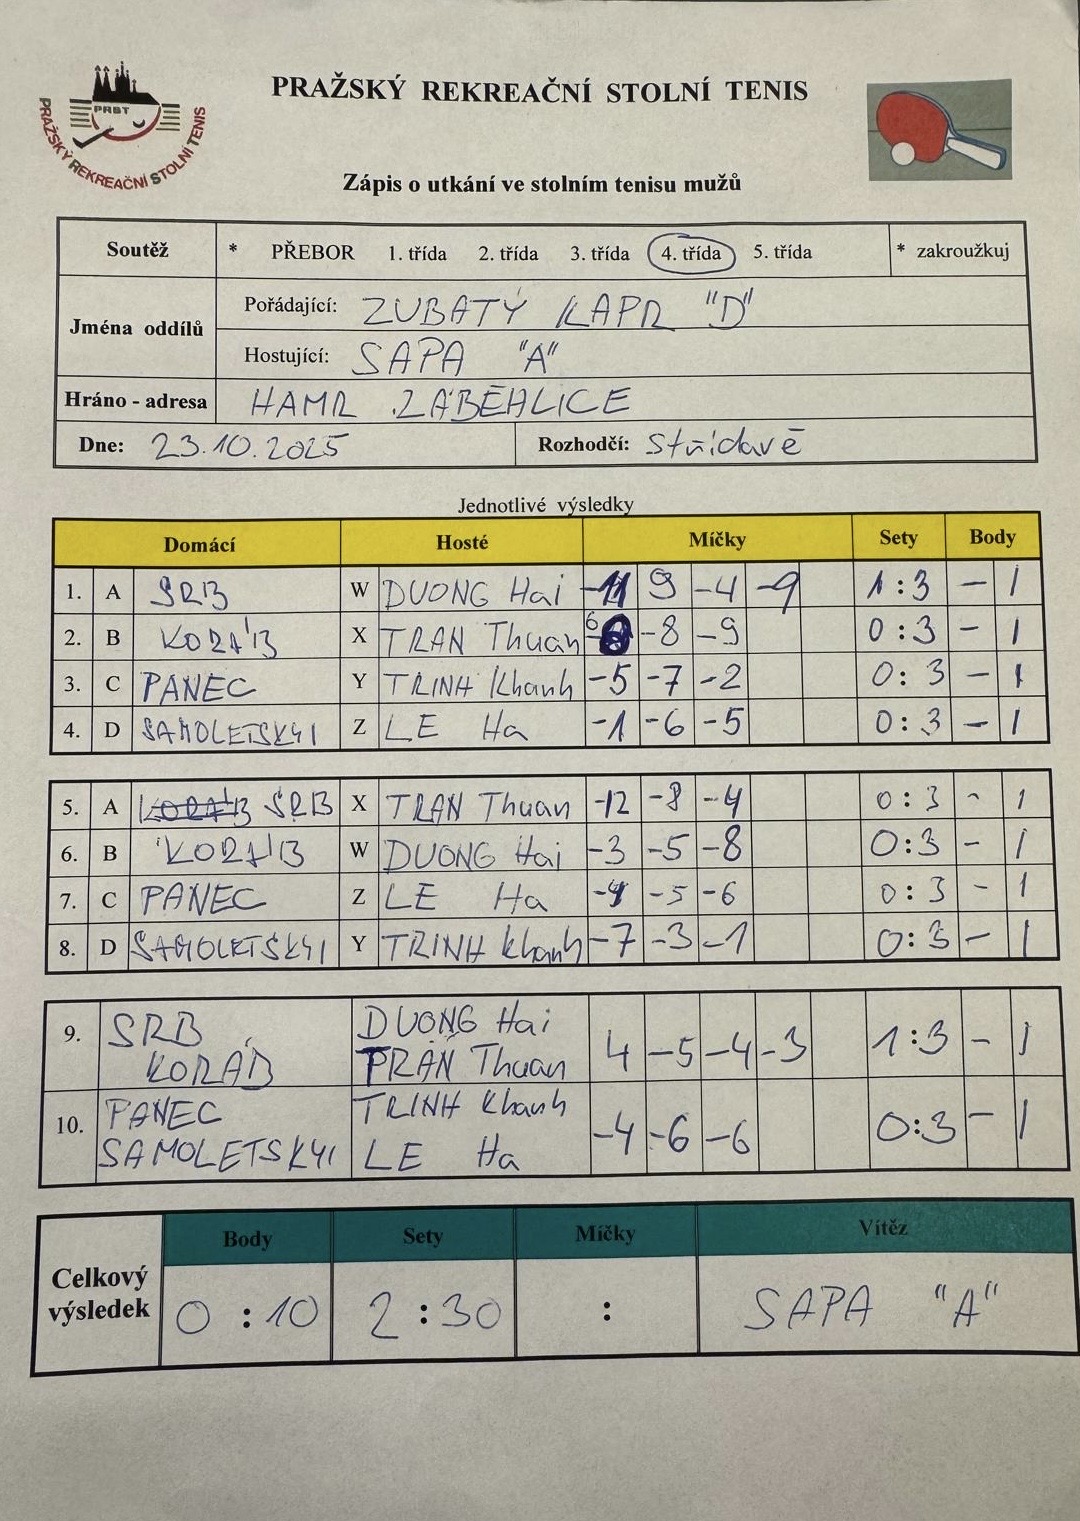 PRAŽSKÝ REKREAČNÍ STOLNÍ TENIS
PRST
PRAŽSKÝ REKREAČNÍ STOLNÍ TENIS
Zápis o utkání ve stolním tenisu mužů
Soutěž * PŘEBOR 1. třída 2. třída 3. třída 4. třída 5. třída * zakroužkuj
Jména oddílů
Pořádající: ZUBATÝ KAPR "D"
Hostující: SAPA "A"
Hráno - adresa HAMR ZÁBĚHLICE
Dne: 23.10.2025 Rozhodčí: Střídavě
Jednotlivé výsledky
Domácí Hosté Míčky Sety Body
1. A SRB W DUONG Hai -11 9 -4 -9 1:3 - 1
2. B KORÁB X TRAN Thuan -6 -8 -9 0:3 - 1
3. C PANEC Y TRINH Khanh -5 -7 -2 0:3 - 1
4. D SAMOLETSKYI Z LE Ha -1 -6 -5 0:3 - 1
5. A KORÁB SRB X TRAN Thuan -12 -8 -4 0:3 - 1
6. B KORÁB W DUONG Hai -3 -5 -8 0:3 - 1
7. C PANEC Z LE Ha -5 -6 0:3 - 1
8. D SAMOLETSKYI Y TRINH Khanh -7 -3 -1 0:3 - 1
9. SRB DUONG Hai 4 -5 -4 -3 1:3 - 1
KORÁB TRAN Thuan
10. PANEC TRINH Khanh -4 -6 -6 0:3 - 1
SAMOLETSKYI LE Ha
Celkový výsledek
Body Sety Míčky Vítěz
0 : 10 2 : 30 : SAPA "A"